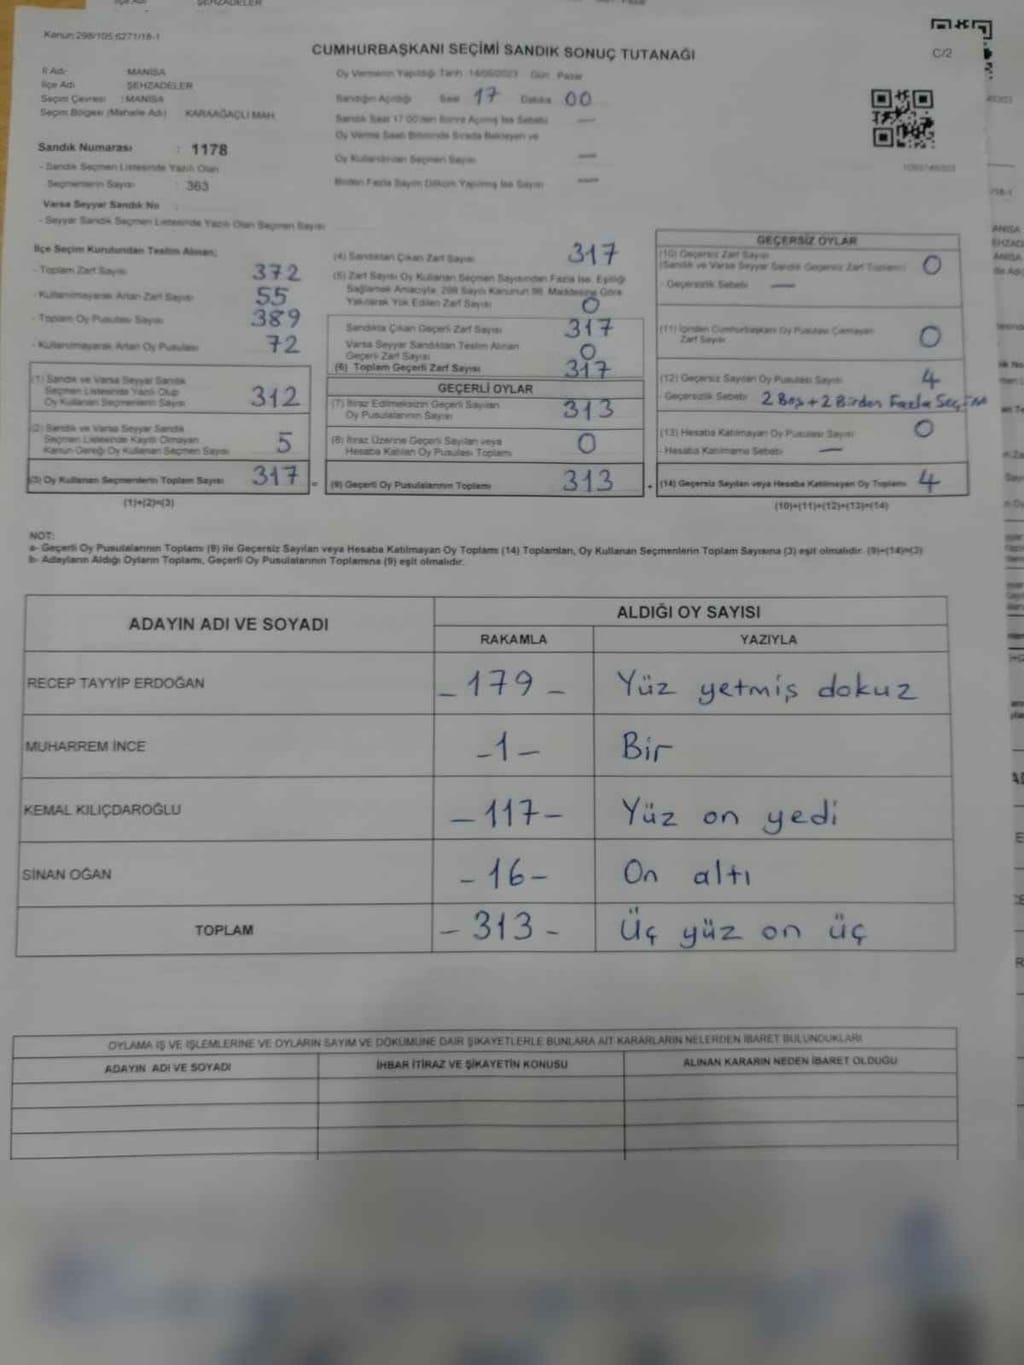 Kanun:298/105.6271/18-1
CUMHURBAŞKANI SEÇİMİ SANDIK SONUÇ TUTANAĞI
C/2
İl Adı : MANİSA
İlçe Adı : ŞEHZADELER
Seçim Çevresi : MANİSA
Seçim Bölgesi (Mahalle Adı) : KARAAĞAÇLI MAH.
Sandık Numarası : 1178
- Sandık Seçmen Listesinde Yazılı Olan
Seçmenlerin Sayısı : 363
Varsa Seyyar Sandık No
- Seyyar Sandık Seçmen Listesinde Yazılı Olan Seçmen Sayısı
Oy Vermenin Yapıldığı Tarih: 14/05/2023 Gün: Pazar
Sandığın Açıldığı Saat 17 Dakika 00
Sandık Saat 17:00'den Sonra Açılmış İse Sebebi —
Oy Verme Saati Bitiminde Sırada Bekleyen ve
Oy Kullandırılan Seçmen Sayısı —
Birden Fazla Sayım Döküm Yapılmış İse Sayısı —
İlçe Seçim Kurulundan Teslim Alınan;
- Toplam Zarf Sayısı 372
- Kullanılmayarak Artan Zarf Sayısı 55
- Toplam Oy Pusulası Sayısı 389
- Kullanılmayarak Artan Oy Pusulası 72
(1) Sandık ve Varsa Seyyar Sandık
Seçmen Listesinde Yazılı Olup
Oy Kullanan Seçmenlerin Sayısı 312
(2) Sandık ve Varsa Seyyar Sandık
Seçmen Listesinde Kayıtlı Olmayan
Kanun Gereği Oy Kullanan Seçmen Sayısı 5
(3) Oy Kullanan Seçmenlerin Toplam Sayısı 317 =
(1)+(2)=(3)
(4) Sandıktan Çıkan Zarf Sayısı 317
(5) Zarf Sayısı Oy Kullanan Seçmen Sayısından Fazla İse, Eşitliği
Sağlamak Amacıyla, 298 Sayılı Kanunun 98. Maddesine Göre
Yakılarak Yok Edilen Zarf Sayısı 0
Sandıkta Çıkan Geçerli Zarf Sayısı 317
Varsa Seyyar Sandıktan Teslim Alınan
Geçerli Zarf Sayısı 0
(6) Toplam Geçerli Zarf Sayısı 317
GEÇERLİ OYLAR
(7) İtiraz Edilmeksizin Geçerli Sayılan
Oy Pusulalarının Sayısı 313
(8) İtiraz Üzerine Geçerli Sayılan veya
Hesaba Katılan Oy Pusulası Toplamı 0
(9) Geçerli Oy Pusulalarının Toplamı 313 +
GEÇERSİZ OYLAR
(10) Geçersiz Zarf Sayısı
(Sandık ve Varsa Seyyar Sandık Geçersiz Zarf Toplamı) 0
- Geçersizlik Sebebi —
(11) İçinden Cumhurbaşkanı Oy Pusulası Çıkmayan
Zarf Sayısı 0
(12) Geçersiz Sayılan Oy Pusulası Sayısı 4
- Geçersizlik Sebebi 2 Boş + 2 Birden Fazla Seçim
(13) Hesaba Katılmayan Oy Pusulası Sayısı 0
- Hesaba Katılmama Sebebi —
(14) Geçersiz Sayılan veya Hesaba Katılmayan Oy Toplamı 4
(10)+(11)+(12)+(13)=(14)
NOT:
a- Geçerli Oy Pusulalarının Toplamı (9) ile Geçersiz Sayılan veya Hesaba Katılmayan Oy Toplamı (14) Toplamları, Oy Kullanan Seçmenlerin Toplam Sayısına (3) eşit olmalıdır. (9)+(14)=(3)
b- Adayların Aldığı Oyların Toplamı, Geçerli Oy Pusulalarının Toplamına (9) eşit olmalıdır.
ADAYIN ADI VE SOYADI ALDIĞI OY SAYISI
RAKAMLA YAZIYLA
RECEP TAYYİP ERDOĞAN - 179 - Yüz yetmiş dokuz
MUHARREM İNCE - 1 - Bir
KEMAL KILIÇDAROĞLU - 117 - Yüz on yedi
SİNAN OĞAN - 16 - On altı
TOPLAM - 313 - Üç yüz on üç
OYLAMA İŞ VE İŞLEMLERİNE VE OYLARIN SAYIM VE DÖKÜMÜNE DAİR ŞİKAYETLERLE BUNLARA AİT KARARLARIN NELERDEN İBARET BULUNDUKLARI
ADAYIN ADI VE SOYADI İHBAR İTİRAZ VE ŞİKAYETİN KONUSU ALINAN KARARIN NEDEN İBARET OLDUĞU